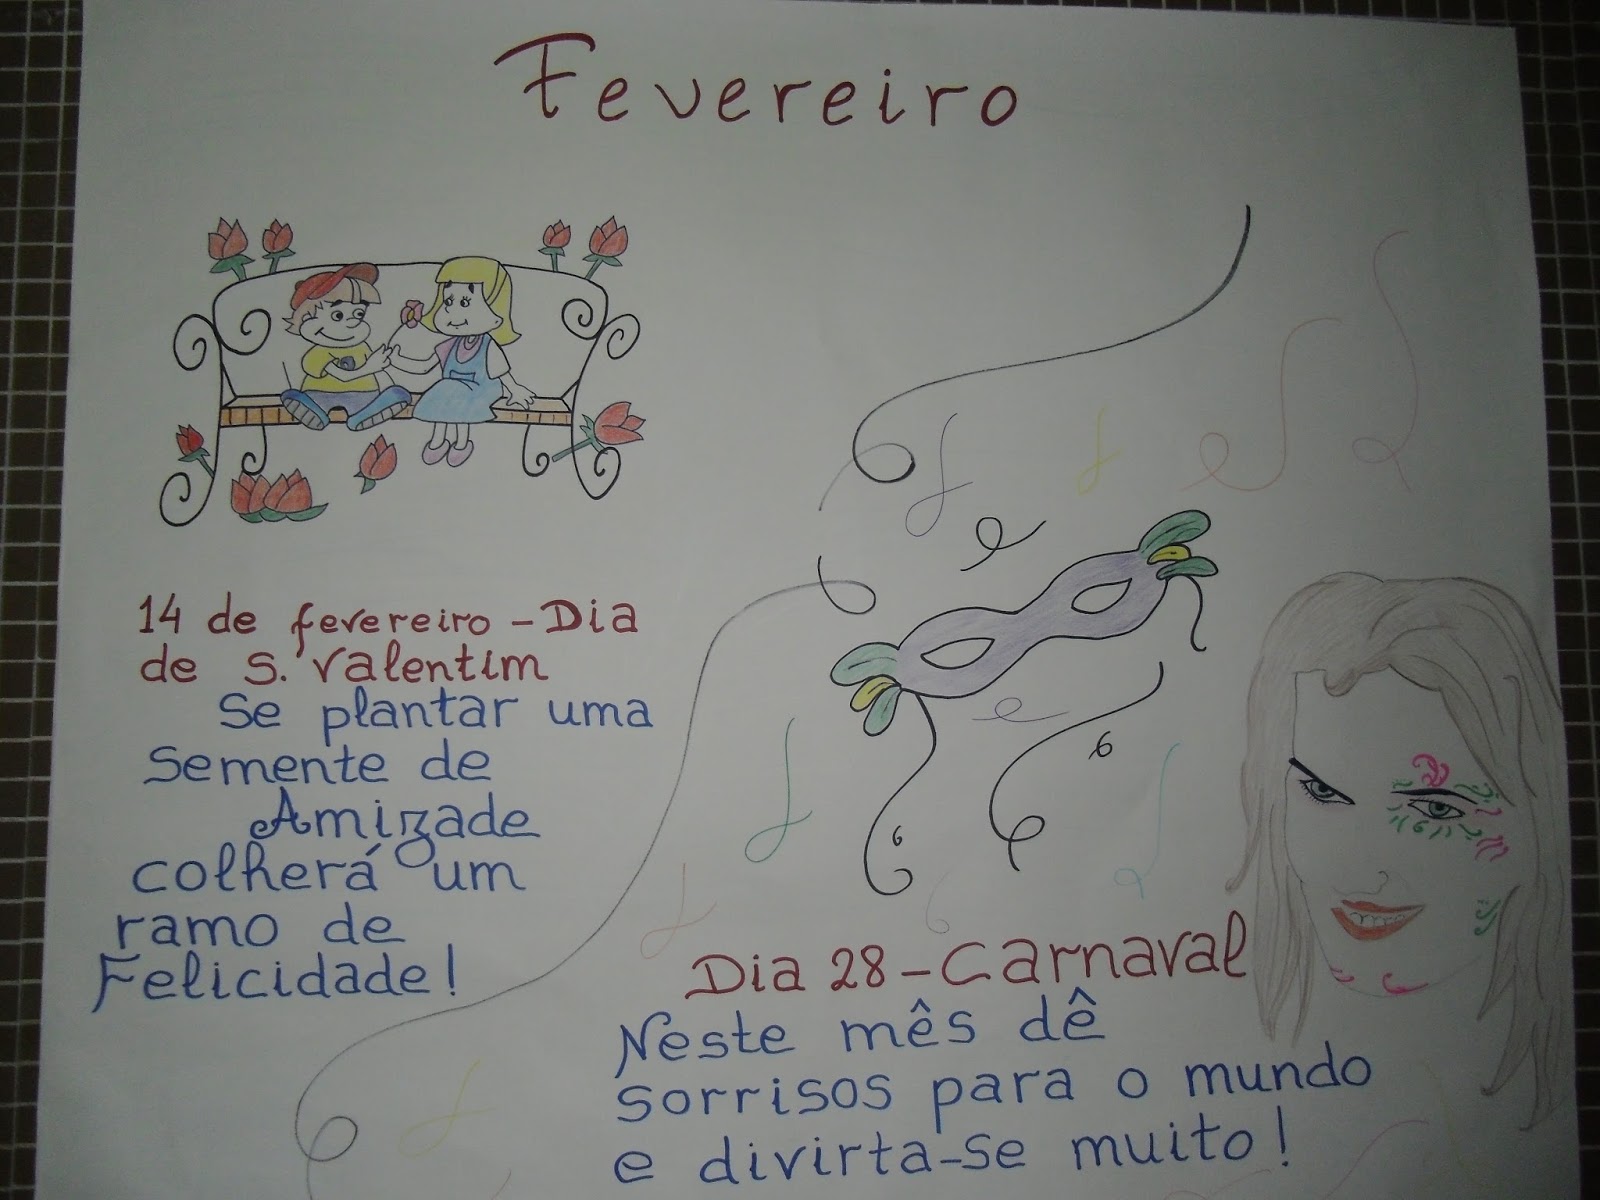 Fevereiro
14 de fevereiro - Dia
de S. Valentim
Se plantar uma
Semente de
Amizade
colherá um
ramo de
Felicidade!
Dia 28 - Carnaval
Neste mês dê
sorrisos para o mundo
e divirta-se muito!